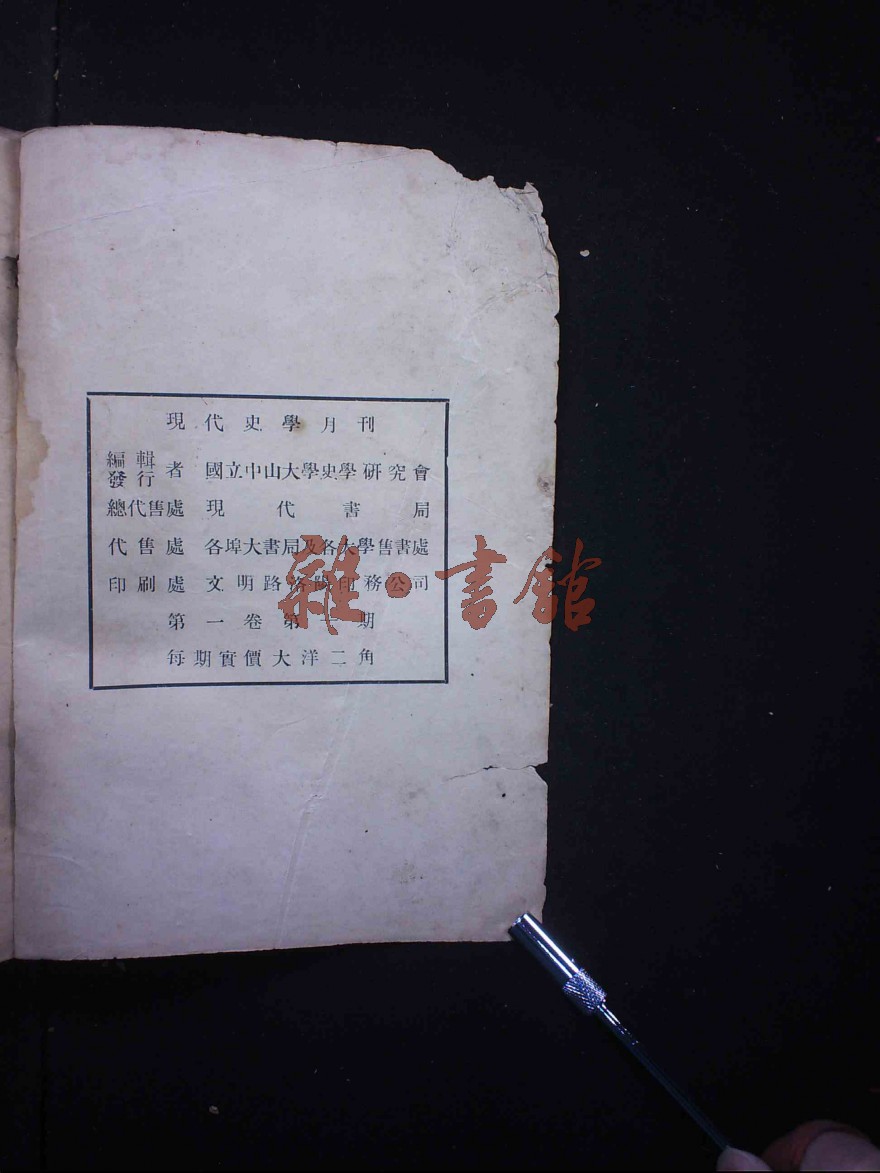 現代史學月刊
編輯
發行者 國立中山大學史學研究會
總代售處 現代書局
代售處 各埠大書局及各大學售書處
印刷處 文明路洛陽印務公司
第一卷第 期
每期實價大洋二角
雜·書館